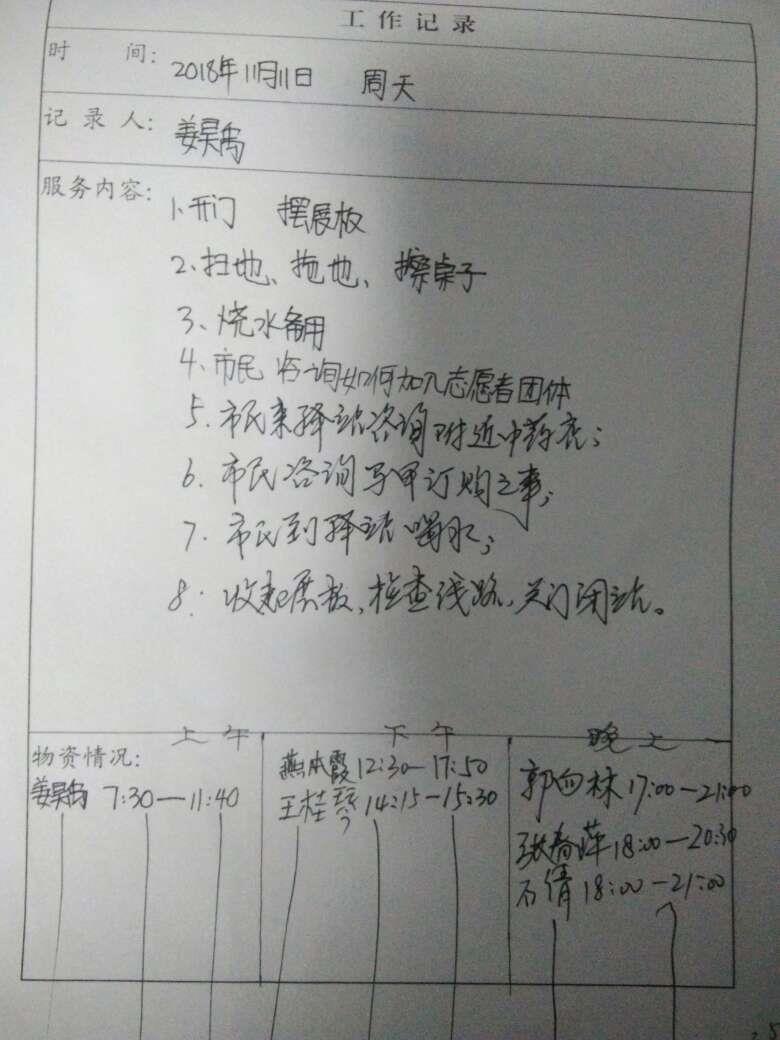 工作记录
时 间： 2018年11月11日 周天
记录人： 姜昊禹
服务内容： 1、开门 摆展板
2、扫地、拖地、擦桌子
3、烧水备用
4、市民咨询如何加入志愿者团体
5、市民来驿站咨询附近中药店；
6、市民咨询马甲订购之事；
7、市民到驿站喝水；
8、收起展板、检查线路、关门闭站。
上午 下午 晚上
物资情况：
姜昊禹 7:30—11:40
燕水霞 12:30—17:50
王桂琴 14:15—15:30
郭向林 17:00—21:00
张春萍 18:00—20:30
石倩 18:00—21:00